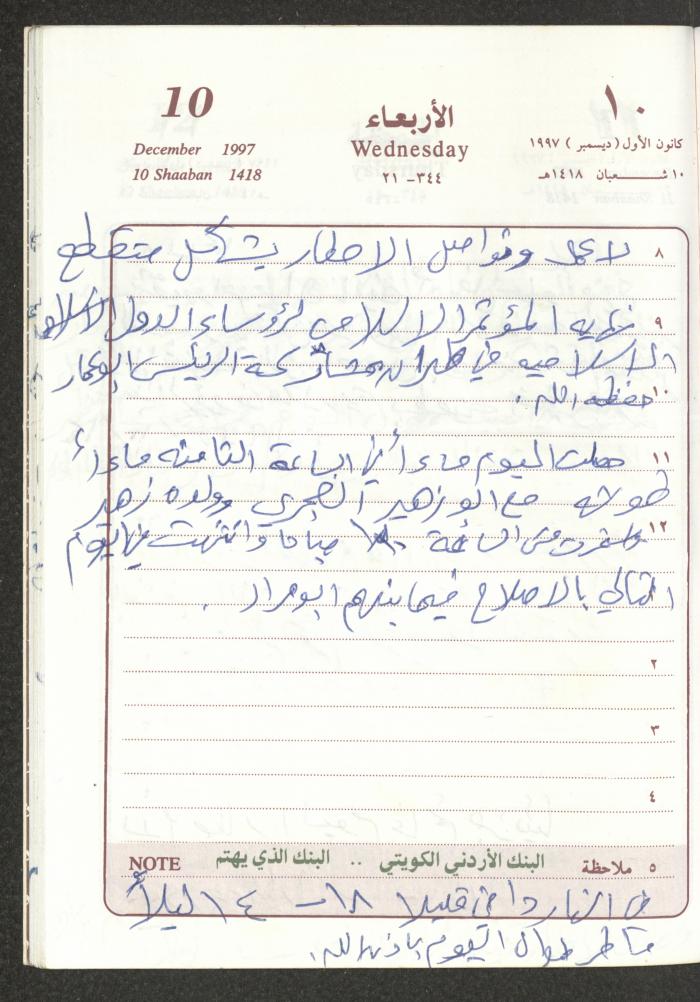 10
December 1997
10 Shaaban 1418
الأربعاء
Wednesday
٣٤٤ - ٢١
١٠
كانون الأول ( ديسمبر ) ١٩٩٧
١٠ شعبان ١٤١٨هـ
٨ لا عمل وتواصل الامطار بشكل متقطع
٩ نهاية المؤتمر الاسلامي لرؤساء الدول
الاسلاميه في طهران بمشاركة الرئيس ابو عمار
١٠ حفظه الله .
١١ حصلت اليوم مساءاً في الساعة الثامنه مساءاً
طوشه مع ابو زهير وولده زهير
١٢ من الساعة صباحا وانتهت في اليوم
١ التالي بالاصلاح فيما بينهم ابو مراد .
٢
٣
٤
٥ ملاحظة
البنك الأردني الكويتي .. البنك الذي يهتم
NOTE
في النهار دافئ قليلا ١٨ - ١٤ ليلاً
ماطر طوال اليوم باذن الله .